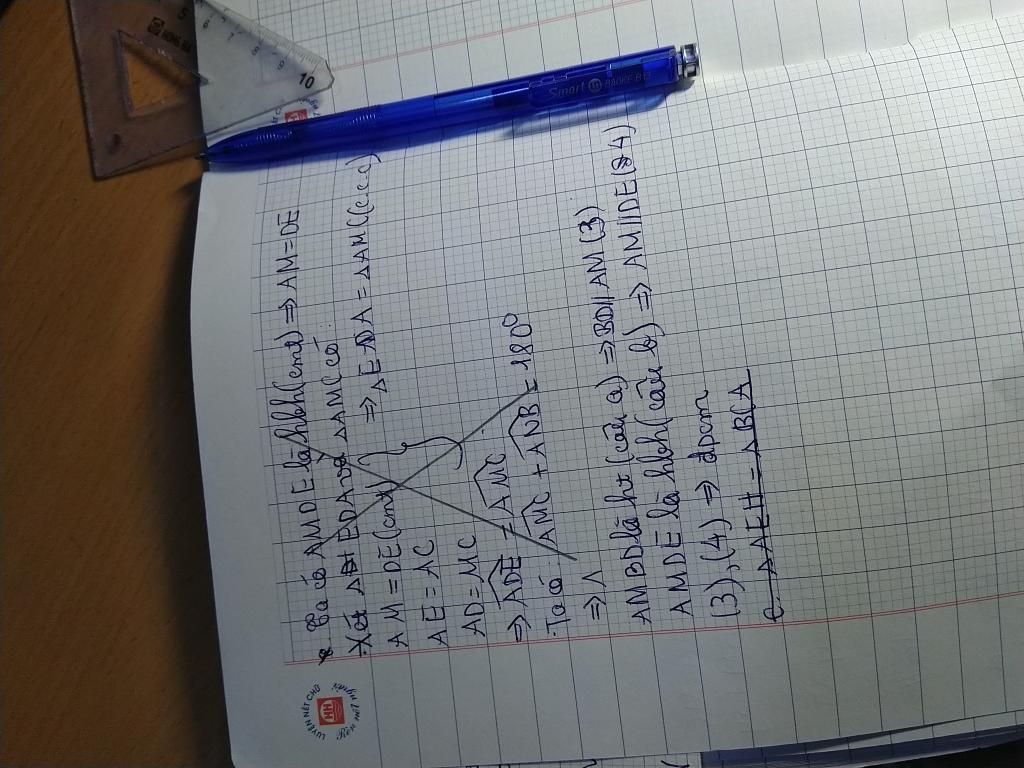 c. Ta có AMDE là hbh(cmt) => AM = DE
Xét ΔEDA và ΔAMC có:
AM = DE (cmt)
AE = AC
=> ΔEDA = ΔAMC(c.c.c)
AD = MC
=> ADE = AMC
Ta có: AMC + AMB = 180°
=> Λ
AMBD là ht (câu a) => BD // AM (3)
AMDE là hbh (câu b) => AM // DE (4)
(3), (4) => đpcm
c. ΔAEH = ΔBCA
LUYỆN NÉT CHỮ
Rèn nét người
HH
Smart
HỒNG HÀ
5
7
8
9
10